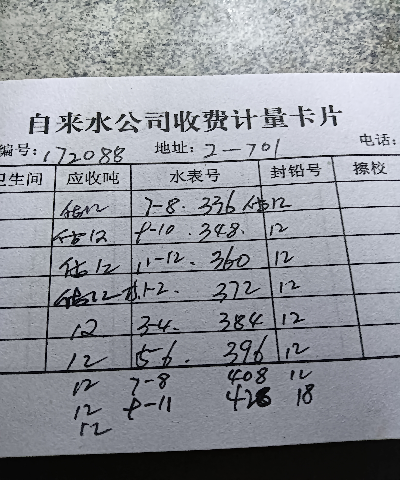 自来水公司收费计量卡片
编号:172088 地址:2-701 电话:
卫生间 应收吨 水表号 封铅号 擦校
估12 7-8. 336 估12
估12 9-10 348. 12
估12 11-12. 360 12
估12 1-2. 372 12
12 3-4. 384 12
12 5-6. 396 12
12 7-8 408 12
12 9-11 426 18
12